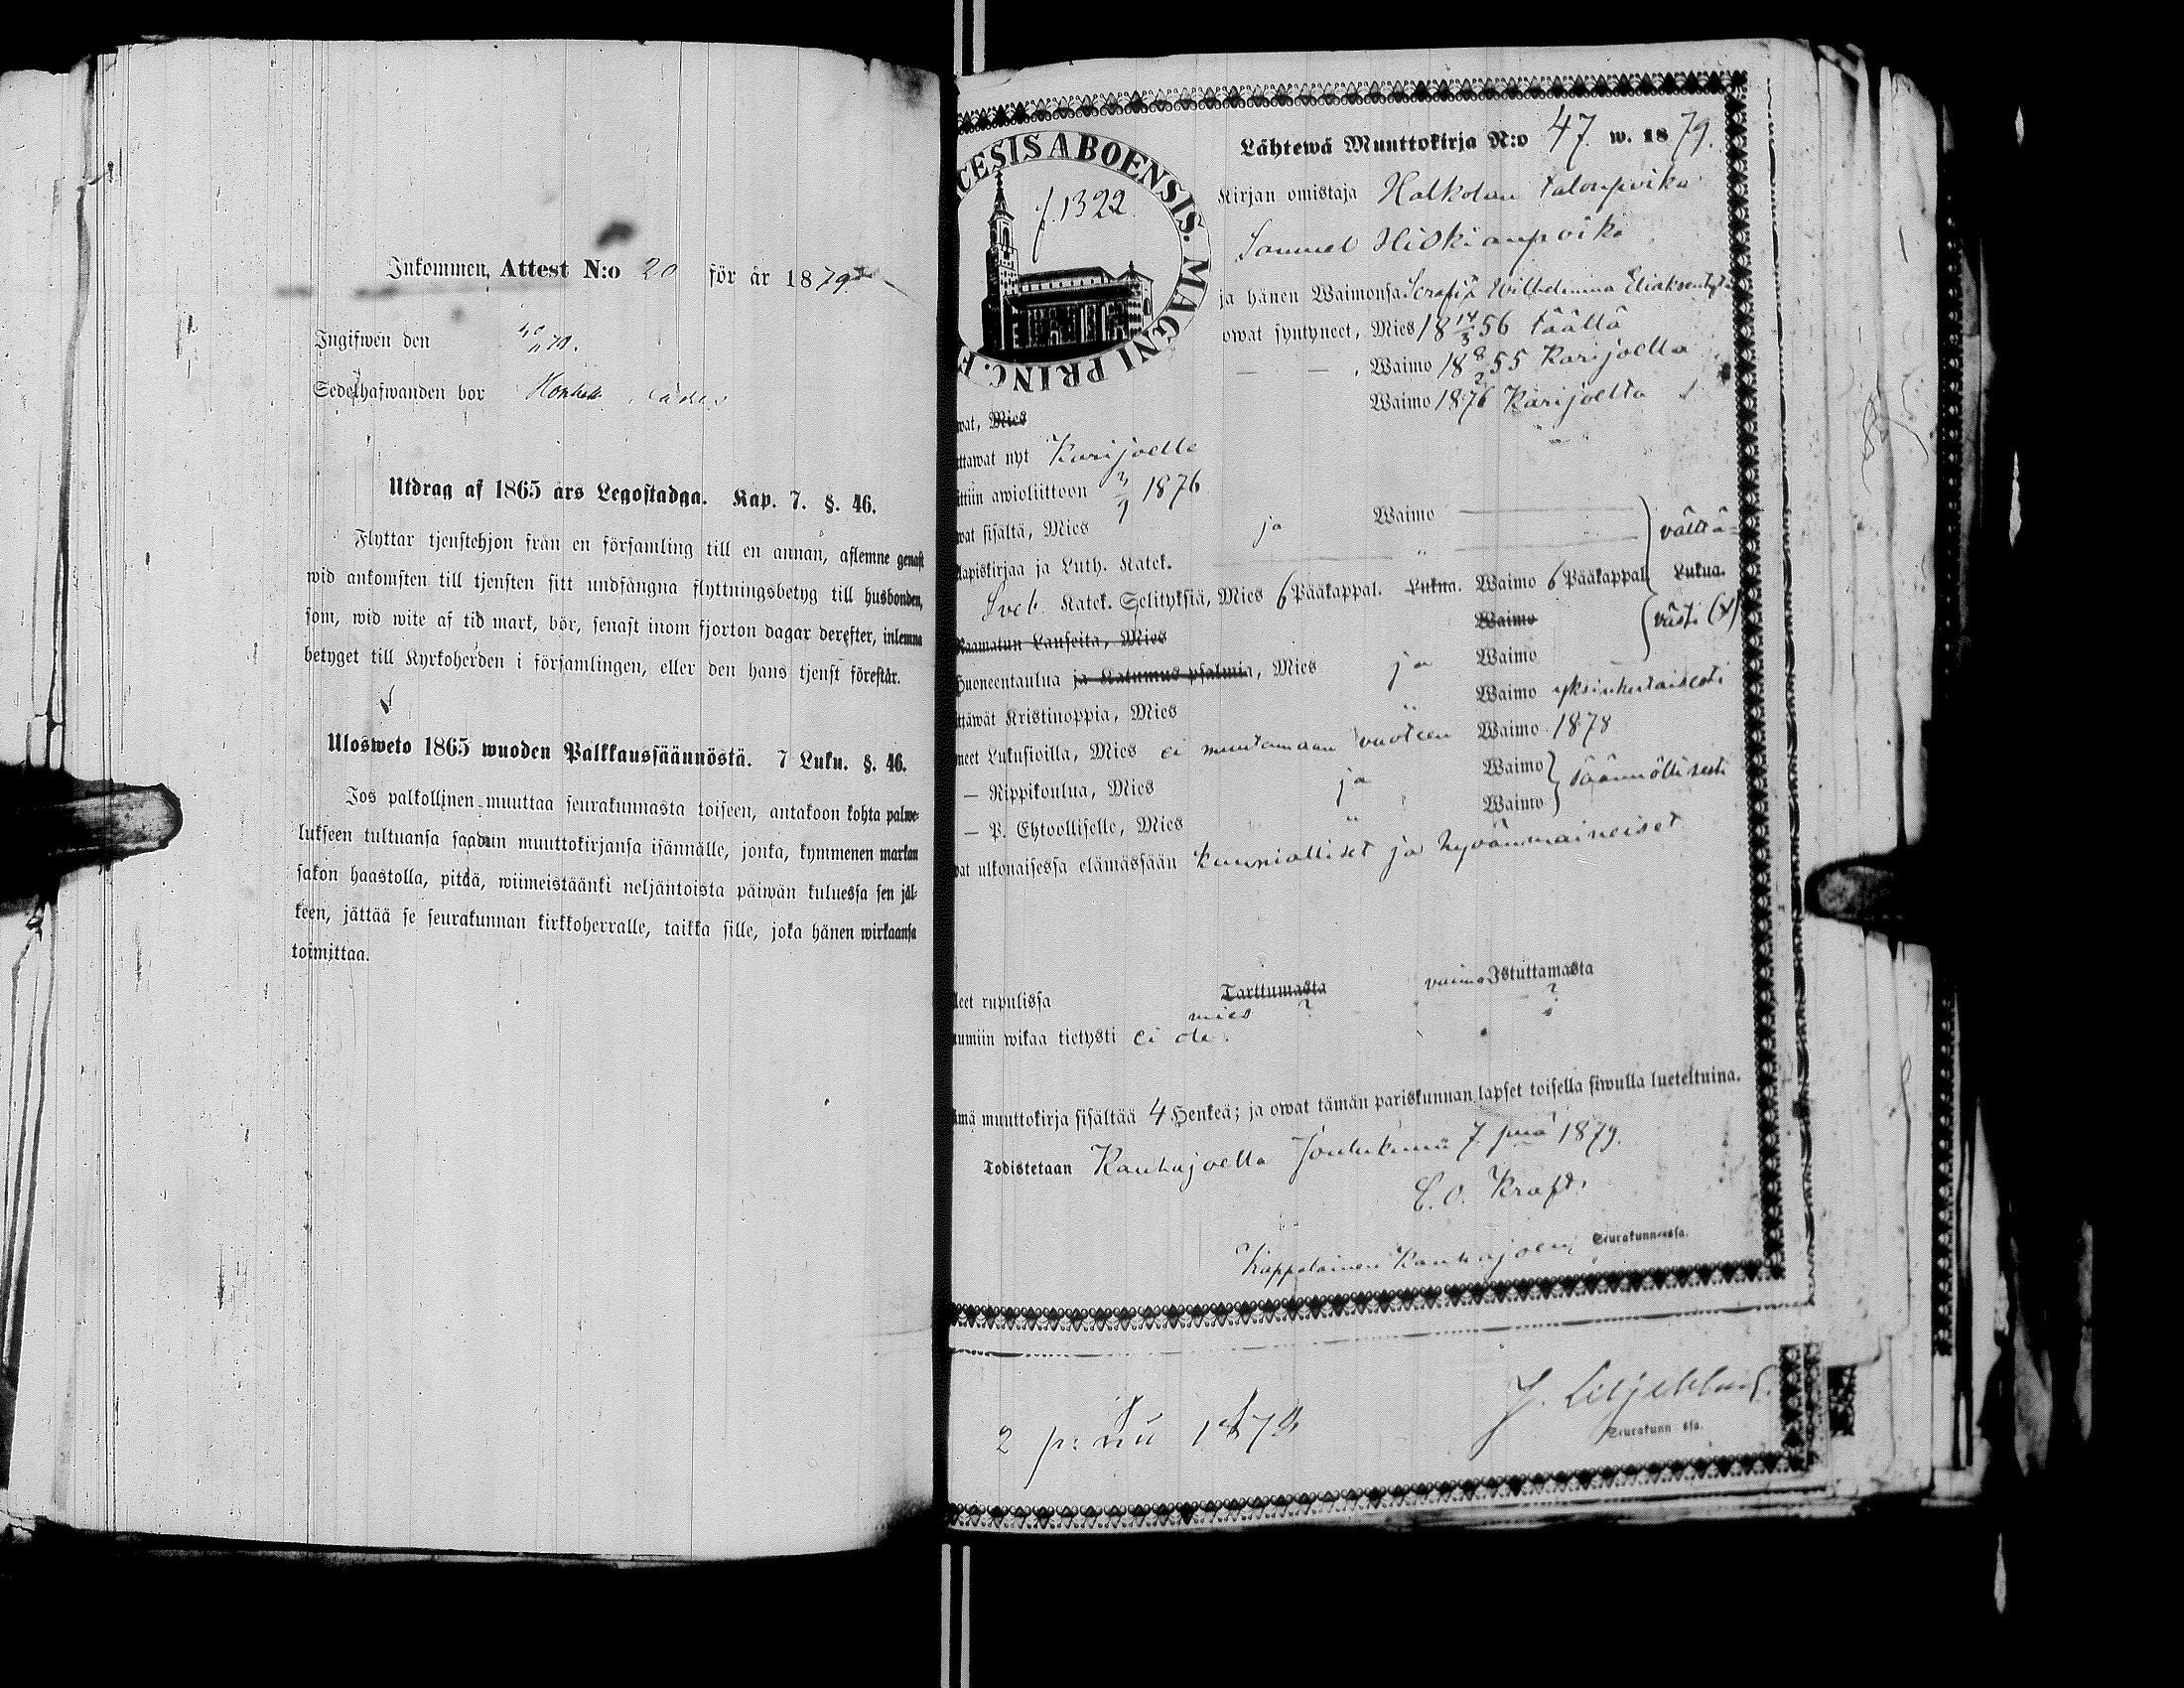 Inkommen, Attest N:o 20 för år 1879
Ingifwen den
Sedelhafwanden bor
Utdrag af 1865 års Legostadga. Kap. 7. §. 46.
Flyttar tjenstehjon från en församling till en annan, aflemne genast
wid ankomsten till tjensten sitt undfångna flyttningsbetyg till husbonden,
som, wid wite af tio mark, bör, senast inom fjorton dagar derefter, inlemna
betyget till Kyrkoherden i församlingen, eller den hans tjenst förestår.
Ulosweto 1865 wuoden Palkkaussäännöstä. 7 Luku. §. 46.
Jos palkollinen muuttaa seurakunnasta toiseen, antakoon kohta palwe-
lukseen tultuansa saadun muuttokirjansa isännälle, jonka, kymmenen markan
sakon haastolla, pitää, wiimeistäänki neljäntoista päiwän kuluessa sen jäl-
keen, jättää se seurakunnan kirkkoherralle, taikka sille, joka hänen wirkaansa
toimittaa.
CESIS ABOENSIS. MAGNI PRINC. F
f. 1322.
Lähtewä Muuttokirja N:o 47. w. 1879.
Kirjan omistaja Halkolan talonpoika
Samuel Hiskianpoika
ja hänen Waimonsa Serafia Wilhelmina Eliaksentytär
owat syntyneet, Mies 18 14/3 56 täällä
— — , Waimo 18 8/2 55 Karijoella
wat, Mies Waimo 1876 Karijoelta
ttawat nyt Karijoelle
ittiin awioliittoon 1876
wat sisältä, Mies ja Waimo
Aapiskirjaa ja Luth. Katek. " välttä-
Sveb. Katek. Selityksiä, Mies 6 Pääkappal. Lukua. Waimo 6 Pääkappal. Lukua.
Raamatun Lauseita, Mies Waimo västi (x)
Huoneentaulua ja Katumus-psalmia, Mies ja Waimo
ttäwät Kristinoppia, Mies " Waimo yksinkertaisesti
neet Lukusioilla, Mies ei muutamaan vuoteen Waimo 1878
— Rippikoulua, Mies ja Waimo
— P. Ehtoolliselle, Mies " Waimo säännöllisesti
wat ulkonaisessa elämässään kunnialliset ja hyvänmaineiset
leet rupulissa Tarttumasta vaimo Istuttamasta
mies ? ?
umiin wikaa tietysti ei ole.
ämä muuttokirja sisältää 4 Henkeä; ja owat tämän pariskunnan lapset toisella siwulla lueteltuina.
Todistetaan Kauhajoella Joulukuun 7. pnä 1879.
C. O. Kraft.
Kappalainen Kauhajoen Seurakunnassa.
2 p:
Seurakunn ssa.